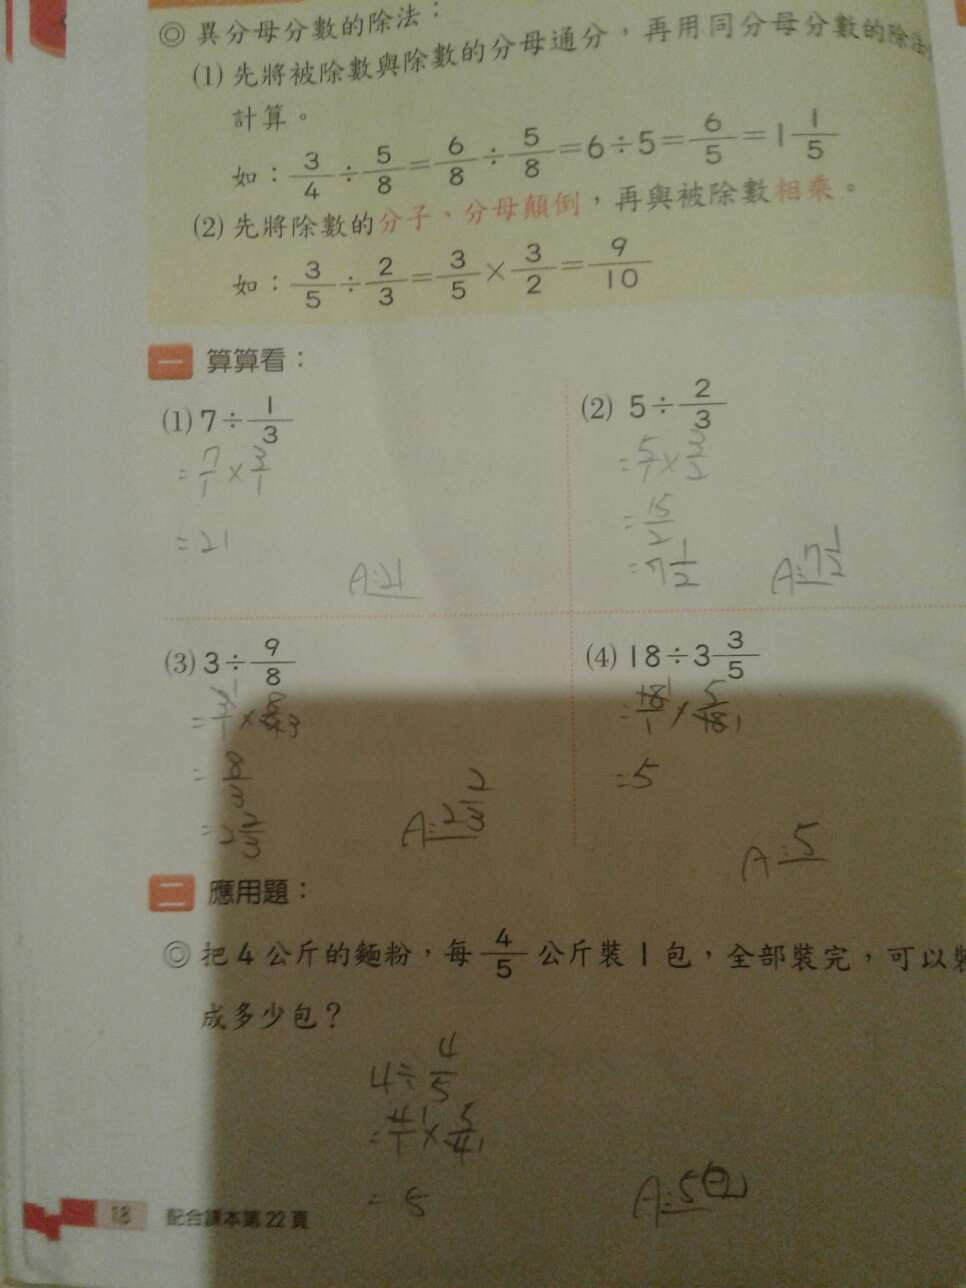 ◎異分母分數的除法：
(1)先將被除數與除數的分母通分，再用同分母分數的除法
計算。
如：3/4÷5/8=6/8÷5/8=6÷5=6/5=1 1/5
(2)先將除數的分子、分母顛倒，再與被除數相乘。
如：3/5÷2/3=3/5×3/2=9/10
一 算算看：
(1) 7÷1/3
=7/1×3/1
=21
A:21
(2) 5÷2/3
=5/1×3/2
=15/2
=7 1/2
A:7 1/2
(3) 3÷9/8
=3/1 1×8/9 3
=8/3
=2 2/3
A:2 2/3
(4) 18÷3 3/5
=18/1 1×5/18 1
=5
A:5
二 應用題：
◎把4公斤的麵粉，每4/5公斤裝1包，全部裝完，可以裝
成多少包？
4÷4/5
=4/1 1×5/4 1
=5
A:5包
18 配合課本第22頁